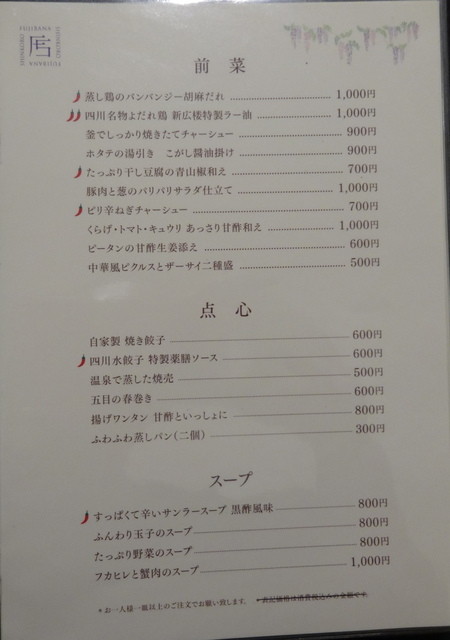 FUJIBANA
前菜
蒸し鶏のバンバンジー胡麻だれ 1,000円
四川名物よだれ鶏 新広楼特製ラー油 1,000円
釜でしっかり焼きたてチャーシュー 900円
ホタテの湯引き こがし醤油掛け 900円
たっぷり干し豆腐の青山椒和え 700円
豚肉と葱のパリパリサラダ仕立て 1,000円
ピリ辛ねぎチャーシュー 700円
くらげ・トマト・キュウリ あっさり甘酢和え 1,000円
ピータンの甘酢生姜添え 600円
中華風ピクルスとザーサイ二種盛 500円
点心
自家製 焼き餃子 600円
四川水餃子 特製薬膳ソース 600円
温泉で蒸した焼売 500円
五目の春巻き 600円
揚げワンタン 甘酢といっしょに 800円
ふわふわ蒸しパン(二個) 300円
スープ
すっぱくて辛いサンラースープ 黒酢風味 800円
ふんわり玉子のスープ 800円
たっぷり野菜のスープ 800円
フカヒレと蟹肉のスープ 1,000円
*お一人様一皿以上のご注文でお願い致します。 *表記価格は消費税込みの金額です。